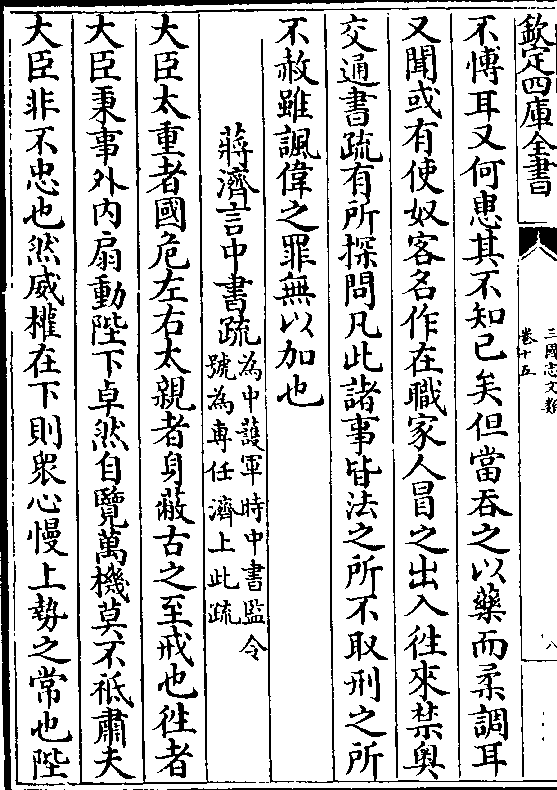 欽定四庫全書
三國志文類
卷十五
八
不博耳又何患其不知已矣但當吞之以藥而柔調耳
又聞或有使奴客名作在職家人冒之出入徃來禁奥
交通書疏有所探問凡此諸事皆法之所不取刑之所
不赦雖諷偉之罪無以加也
蔣濟言中書疏為中護軍時中書監令
號為専任濟上此疏
大臣太重者國危左右太親者身蔽古之至戒也徃者
大臣秉事外内扇動陛下卓然自覽萬機莫不祗肅夫
大臣非不忠也然威權在下則衆心慢上勢之常也陛